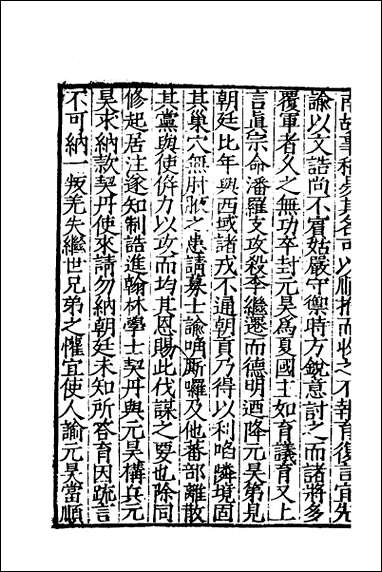 南故事稍易其名可以順撫而收之不報育復言宜先
諭以文誥尚不賓姑嚴守禦時方銳意討之而諸將多
覆軍者久之無功卒封元昊爲夏國主如育議育又上
言眞宗命潘羅支攻殺李繼遷而德明迺降元昊第見
朝廷比年與西域諸戎不通朝貢乃得以利啗隣境固
其巢穴無肘腋之患請募士諭唃厮囉及他蕃部離散
其黨與使併力以攻而均其恩賜此伐謀之要也除同
修起居注遂知制誥進翰林學士契丹與元昊構兵元
昊求納款契丹使來請勿納朝廷未知所答育因疏言
不可納一叛羌失繼世兄弟之懽宜使人諭元昊當順